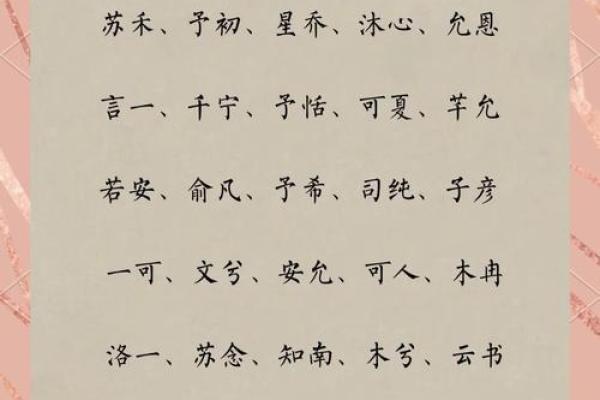 苏禾、予初、星乔、沐心、允恩
言一、千宁、予恬、可夏、芊允
若安、俞凡、予希、司纯、子彦
一可、文兮、安允、可人、木冉
洛一、苏念、知南、木兮、云书